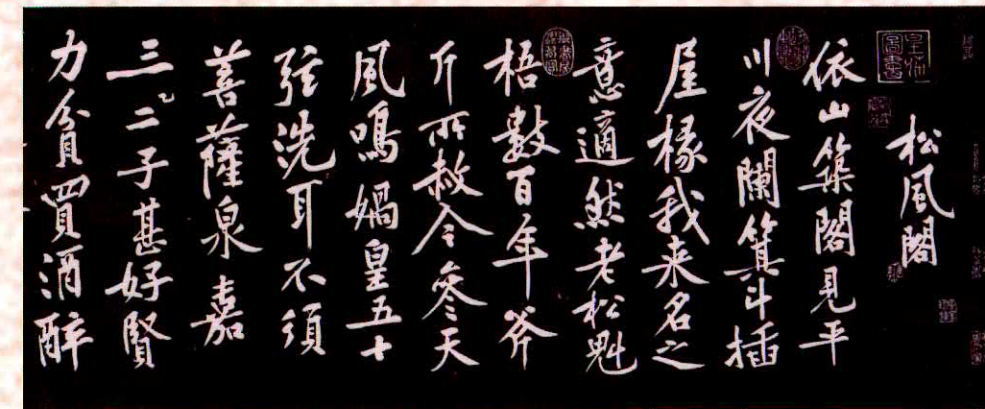 松風閣
依山築閣見平
川夜闌箕斗插
屋椽我来名之
意適然老松魁
梧數百年斧
斤所赦今參天
風鳴媧皇五十
弦洗耳不須
菩薩泉嘉
三二子甚好賢
力貧買酒醉